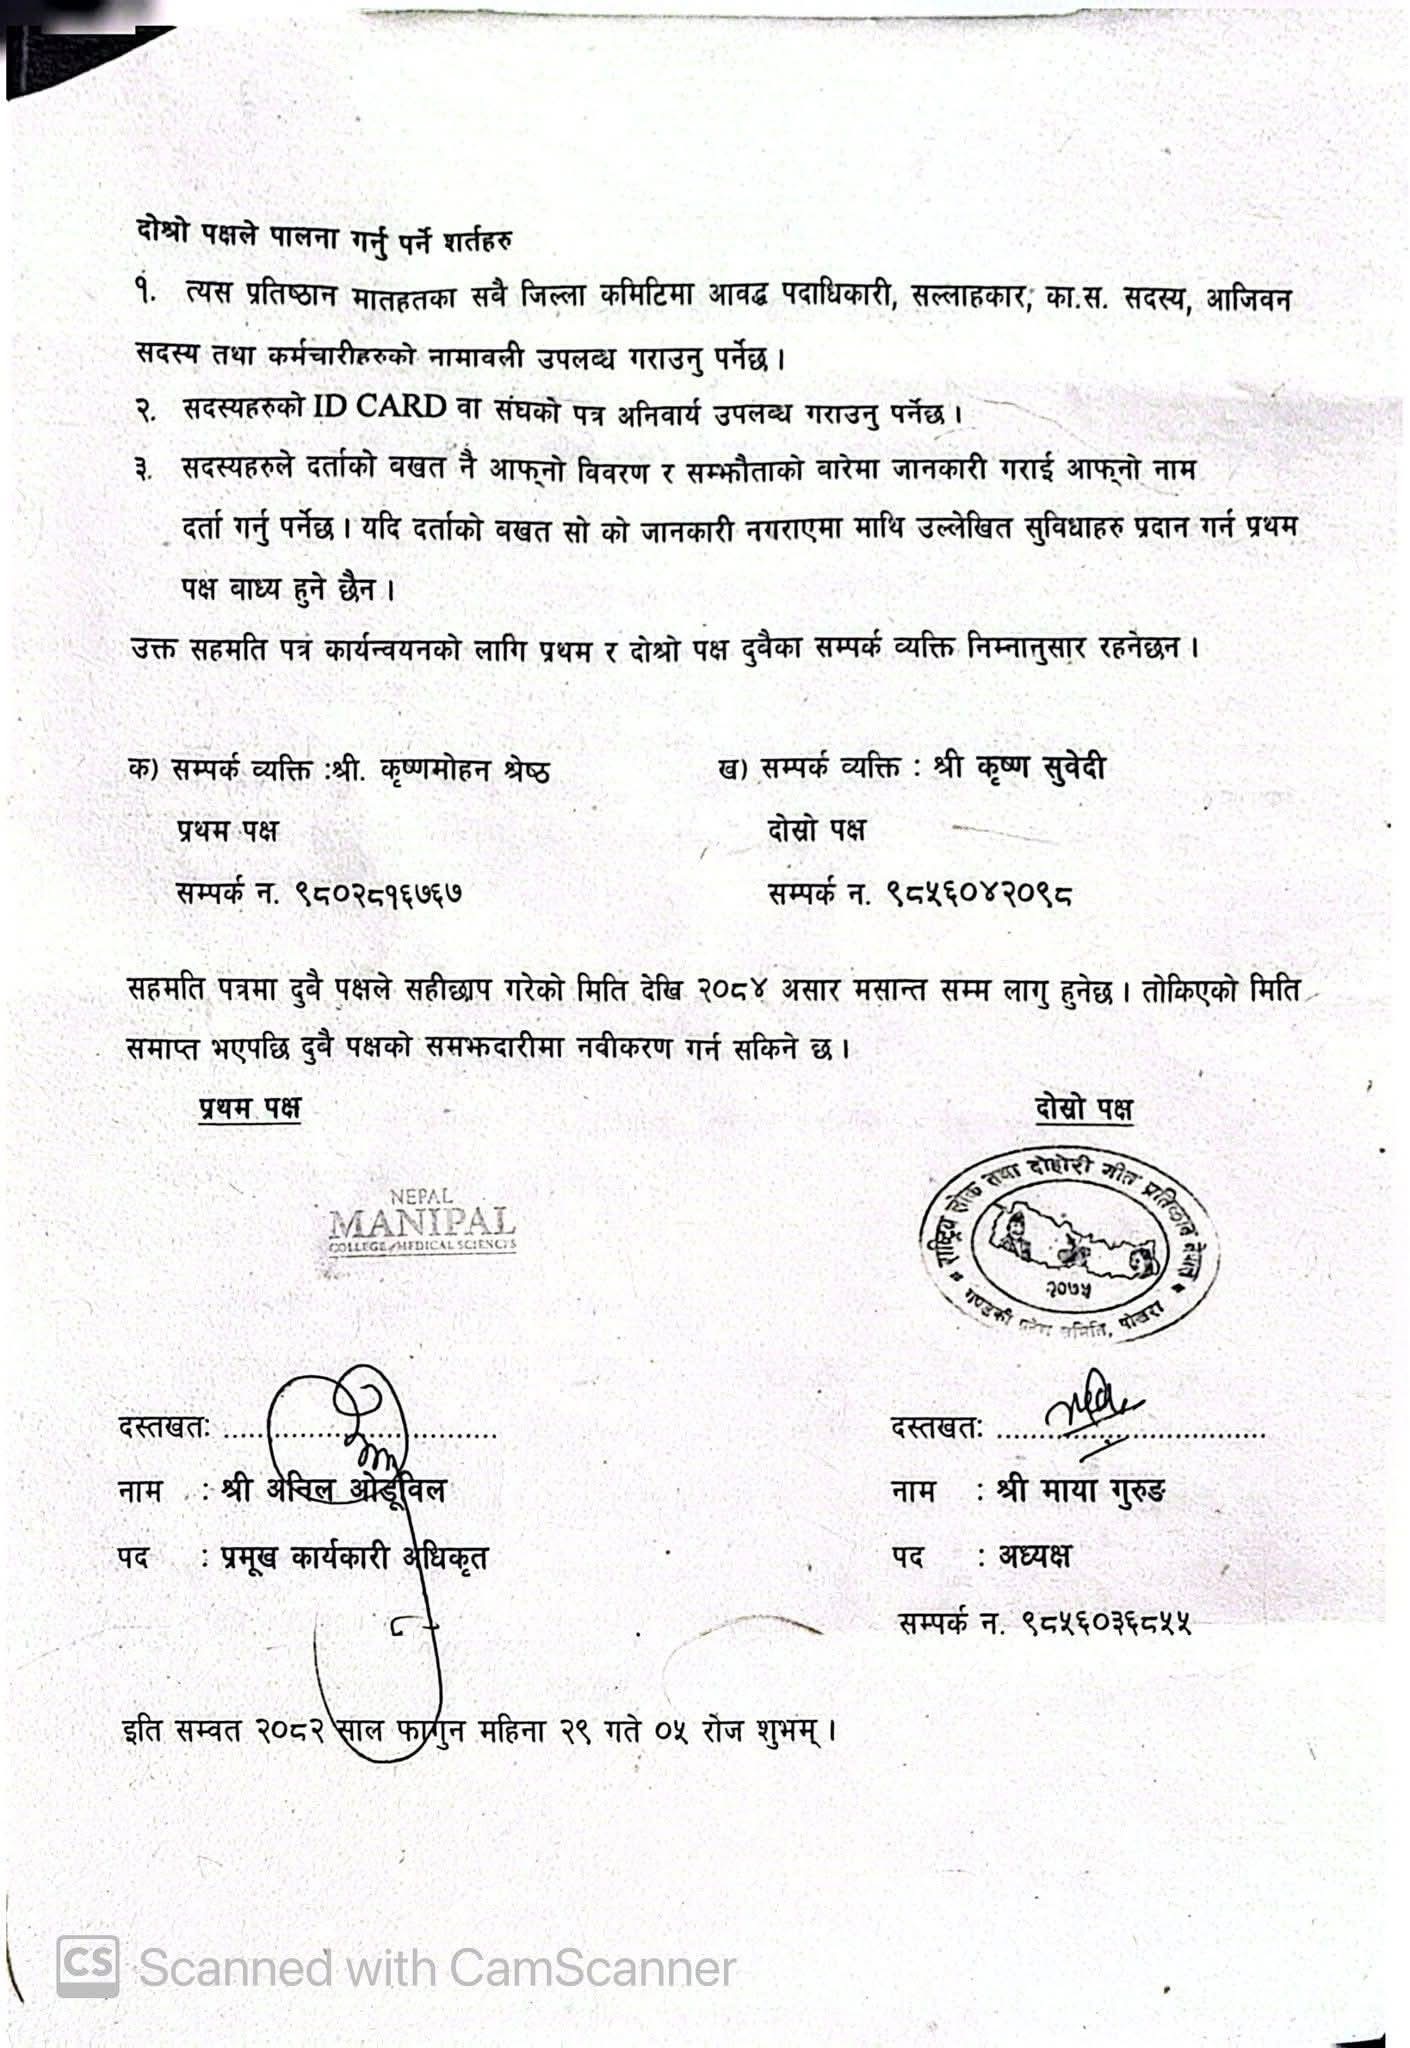 दोश्रो पक्षले पालना गर्नु पर्ने शर्तहरु
१. त्यस प्रतिष्ठान मातहतका सवै जिल्ला कमिटिमा आवद्ध पदाधिकारी, सल्लाहकार, का.स. सदस्य, आजिवन
सदस्य तथा कर्मचारीहरुको नामावली उपलव्ध गराउनु पर्नेछ ।
२. सदस्यहरुको ID CARD वा संघको पत्र अनिवार्य उपलव्ध गराउनु पर्नेछ ।
३. सदस्यहरुले दर्ताको वखत नै आफ्नो विवरण र सम्झौताको वारेमा जानकारी गराई आफ्नो नाम
दर्ता गर्नु पर्नेछ । यदि दर्ताको वखत सो को जानकारी नगराएमा माथि उल्लेखित सुविधाहरु प्रदान गर्न प्रथम
पक्ष वाध्य हुने छैन ।
उक्त सहमति पत्र कार्यन्वयनको लागि प्रथम र दोश्रो पक्ष दुवैका सम्पर्क व्यक्ति निम्नानुसार रहनेछन ।
क) सम्पर्क व्यक्ति :श्री. कृष्णमोहन श्रेष्ठ ख) सम्पर्क व्यक्ति : श्री कृष्ण सुवेदी
प्रथम पक्ष दोस्रो पक्ष
सम्पर्क न. ९८०२८१६७६७ सम्पर्क न. ९८५६०४२०९८
सहमति पत्रमा दुवै पक्षले सहीछाप गरेको मिति देखि २०८४ असार मसान्त सम्म लागु हुनेछ । तोकिएको मिति
समाप्त भएपछि दुवै पक्षको समझदारीमा नवीकरण गर्न सकिने छ ।
प्रथम पक्ष दोस्रो पक्ष
NEPAL
MANIPAL
COLLEGE of MEDICAL SCIENCES
राष्ट्रिय लोक तथा दोहोरी गीत प्रतिष्ठान नेपाल
२०७५
गण्डकी प्रदेश समिति, पोखरा
दस्तखतः ................................ दस्तखतः ................................
नाम : श्री अनिल ओडूविल नाम : श्री माया गुरुङ
पद : प्रमूख कार्यकारी अधिकृत पद : अध्यक्ष
सम्पर्क न. ९८५६०३६८५५
इति सम्वत २०८२ साल फागुन महिना २९ गते ०५ रोज शुभम् ।
CS Scanned with CamScanner